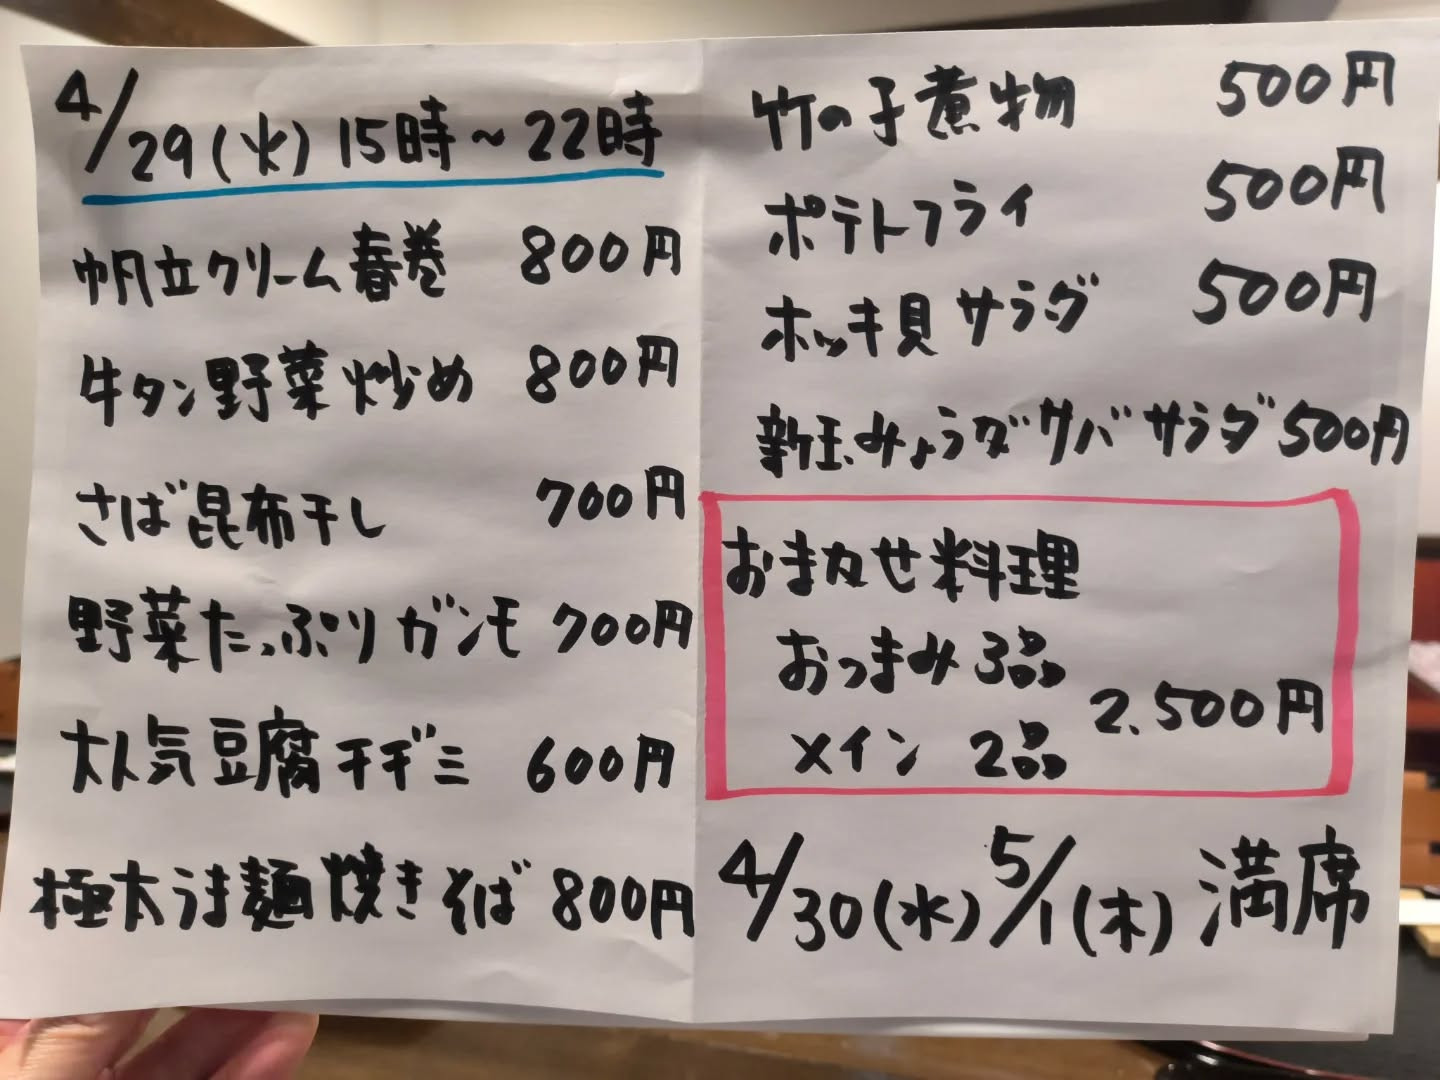 4/29(火)15時~22時
帆立クリーム春巻 800円
牛タン野菜炒め 800円
さば昆布干し 700円
野菜たっぷりガンモ 700円
大人気豆腐チヂミ 600円
極太うま麺焼きそば 800円
竹の子煮物 500円
ポテトフライ 500円
ホッキ貝サラダ 500円
新玉みょうがサバサラダ 500円
おまかせ料理
おつまみ3品
メイン 2品 2.500円
4/30(水)5/1(木)満席